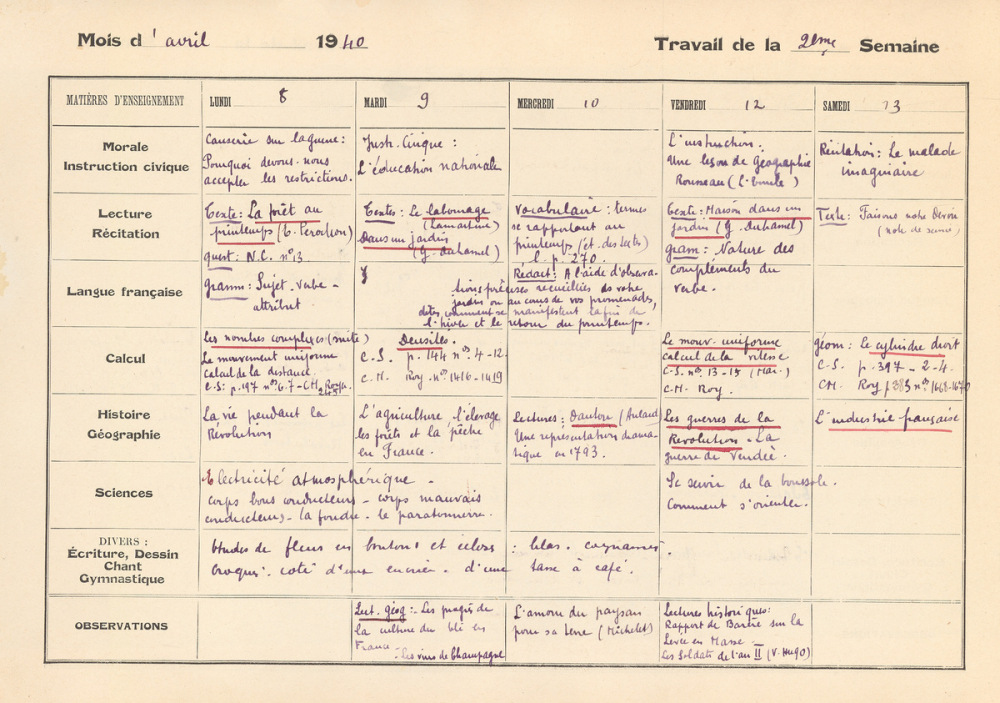 Mois d'avril 1940
Travail de la 2ème Semaine
MATIÈRES D'ENSEIGNEMENT
LUNDI 8
MARDI 9
MERCREDI 10
VENDREDI 12
SAMEDI 13
Morale
Instruction civique
Causerie sur la guerre :
Pourquoi devons-nous
accepter les restrictions.
Instr. Civique :
L'éducation nationale
L'instruction.
Une leçon de géographie
Rousseau (l'Emile)
Récitation : Le malade
imaginaire
Lecture
Récitation
Texte : La forêt au
printemps (E. Perochon)
quest : N.C. n° 13
Textes : Le labourage
(Lamartine)
Dans un jardin
(G. Duhamel)
Vocabulaire : termes
se rapportant au
printemps (et. des textes)
l. p. 270.
Texte : Maison dans un
jardin (G. Duhamel)
gram : Nature des
compléments du
verbe.
Texte : Faisons notre Devoir
Langue française
gramm : Sujet - verbe -
attribut
Rédact : A l'aide d'observa-
tions précises recueillies ds votre
jardin ou au cours de vos promenades,
dites comment se manifestent la fin de
l'hiver et le retour du printemps.
Calcul
Les nombres complexes (suite)
Le mouvement uniforme
calcul de la distance.
C.S : p. 197 n°s 6.7 - CM. Roy n°
Densités.
C.S. p. 144 n°s 4-12.
C.M. Roy. n° 1416-1419
Le mouv. uniforme
calcul de la vitesse
C.S. n°s 13-15 (Mar.)
C.M. Roy.
géom : Le cylindre droit
C.S. p. 397 - 2-4.
CM. Roy p 383 n°s 1668-1670
Histoire
Géographie
La vie pendant la
Révolution
L'agriculture, l'élevage
les forêts et la pêche
en France.
Lectures : Danton (Aulard)
Une représentation drama-
tique en 1793.
Les guerres de la
Révolution - La
guerre de Vendée.
L'industrie française
Sciences
Electricité atmosphérique -
corps bons conducteurs - corps mauvais
conducteurs - la foudre - le paratonnerre.
Se servir de la boussole.
Comment s'orienter.
DIVERS :
Écriture, Dessin
Chant
Gymnastique
Etudes de fleurs en boutons et écloses : lilas - cognassier.
Croquis coté d'un encrier - d'une tasse à café.
OBSERVATIONS
Lect. géog : - Les progrès de
la culture du blé en
France
- Les vins de Champagne
L'amour du paysan
pour sa terre (Michelet)
Lectures historiques :
Rapport de Barère sur la
Levée en Masse -
Les Soldats de l'an II (V. Hugo)